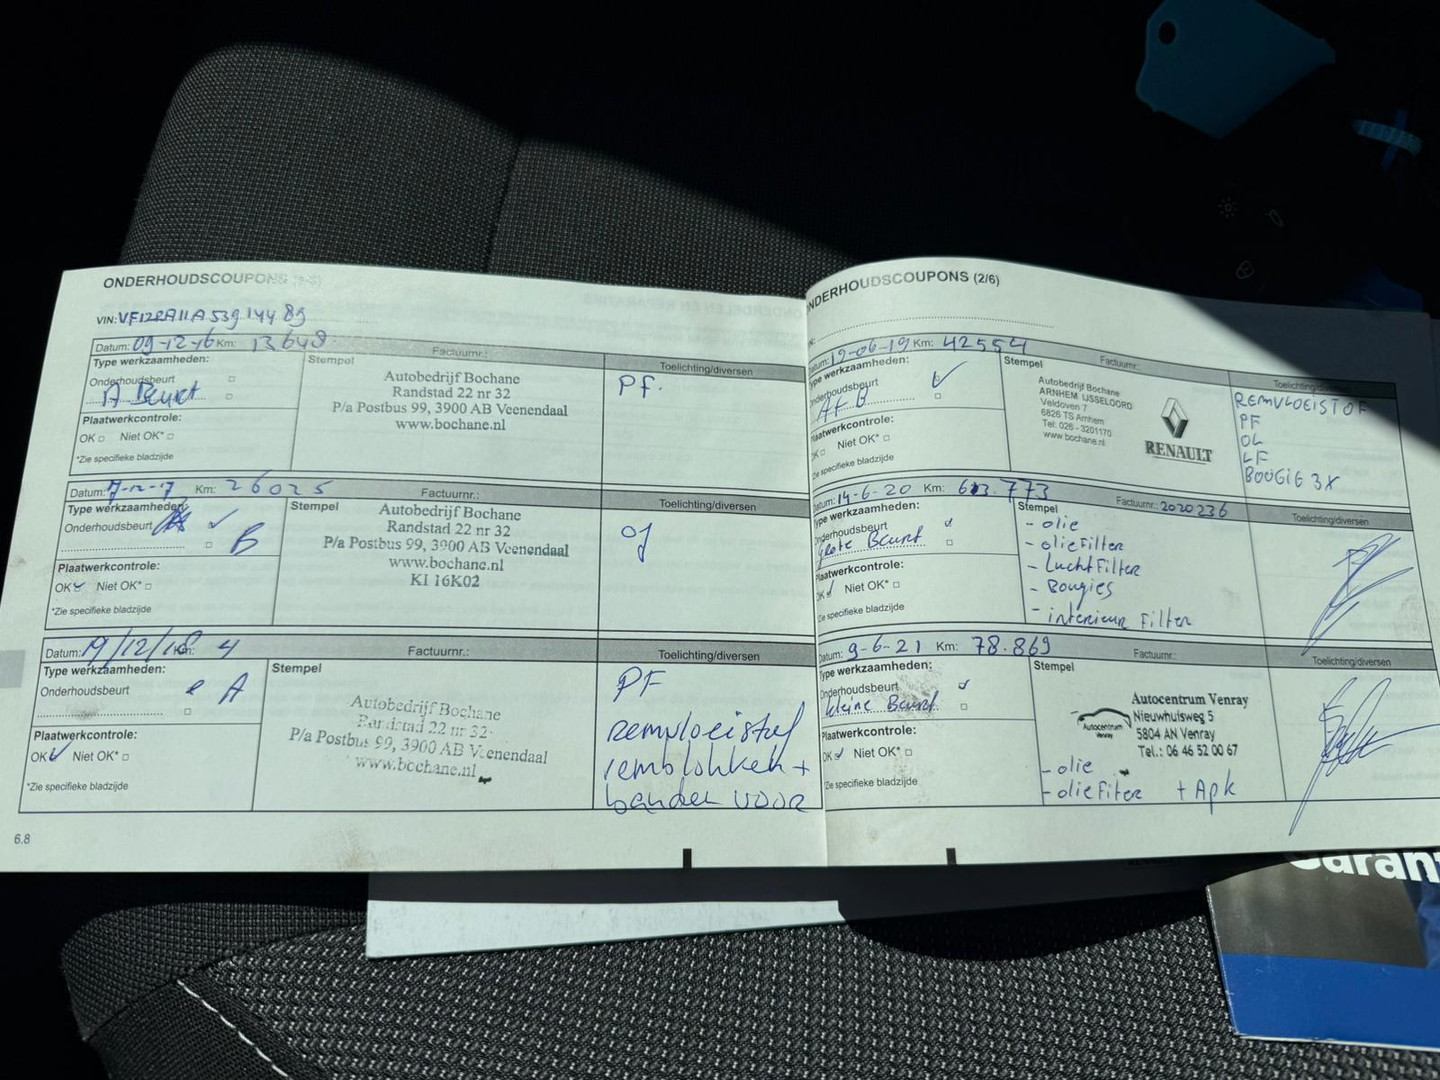 ONDERHOUDSCOUPONS
VIN:
Datum: 09-12-16 Km: 13648
Factuurnr.:
Type werkzaamheden:
Stempel
Toelichting/diversen
Onderhoudsbeurt
A Beurt
Plaatwerkcontrole:
OK Niet OK*
*Zie specifieke bladzijde
Autobedrijf Bochane
Randstad 22 nr 32
P/a Postbus 99, 3900 AB Veenendaal
www.bochane.nl
PF.
Datum: 7-12-17 Km: 26025
Factuurnr.:
Type werkzaamheden:
Stempel
Toelichting/diversen
Onderhoudsbeurt
B
Plaatwerkcontrole:
OK Niet OK*
*Zie specifieke bladzijde
Autobedrijf Bochane
Randstad 22 nr 32
P/a Postbus 99, 3900 AB Veenendaal
www.bochane.nl
KI 16K02
Datum: 19/12/18 Km: 4
Factuurnr.:
Type werkzaamheden:
Stempel
Toelichting/diversen
Onderhoudsbeurt
A
Plaatwerkcontrole:
OK Niet OK*
*Zie specifieke bladzijde
Autobedrijf Bochane
Randstad 22 nr 32
P/a Postbus 99, 3900 AB Veenendaal
www.bochane.nl
PF
remvloeistof
remblokken +
banden voor
6.8
ONDERHOUDSCOUPONS (2/6)
Datum: 19-06-19 Km: 42554
Factuurnr.:
Type werkzaamheden:
Stempel
Toelichting/diversen
Onderhoudsbeurt
Plaatwerkcontrole:
OK Niet OK*
*Zie specifieke bladzijde
Autobedrijf Bochane
ARNHEM IJSSELOORD
Veldoven 7
6826 TS Arnhem
Tel: 026 - 3201170
www.bochane.nl
RENAULT
REMVLOEISTOF
PF
OL
LF
BOUGIE 3X
Datum: 14-6-20 Km:
Factuurnr.: 2020236
Type werkzaamheden:
Stempel
Toelichting/diversen
Onderhoudsbeurt
Grote Beurt
Plaatwerkcontrole:
OK Niet OK*
*Zie specifieke bladzijde
- olie
- olieFilter
- LuchtFilter
- Bougies
- interieur Filter
Datum: 9-6-21 Km: 78.869
Factuurnr.:
Type werkzaamheden:
Stempel
Toelichting/diversen
Onderhoudsbeurt
kleine Beurt
Plaatwerkcontrole:
OK Niet OK*
*Zie specifieke bladzijde
Autocentrum Venray
Autocentrum Venray
Nieuwhuisweg 5
5804 AN Venray
Tel.: 06 46 52 00 67
- olie
- olieFilter + Apk
Garant